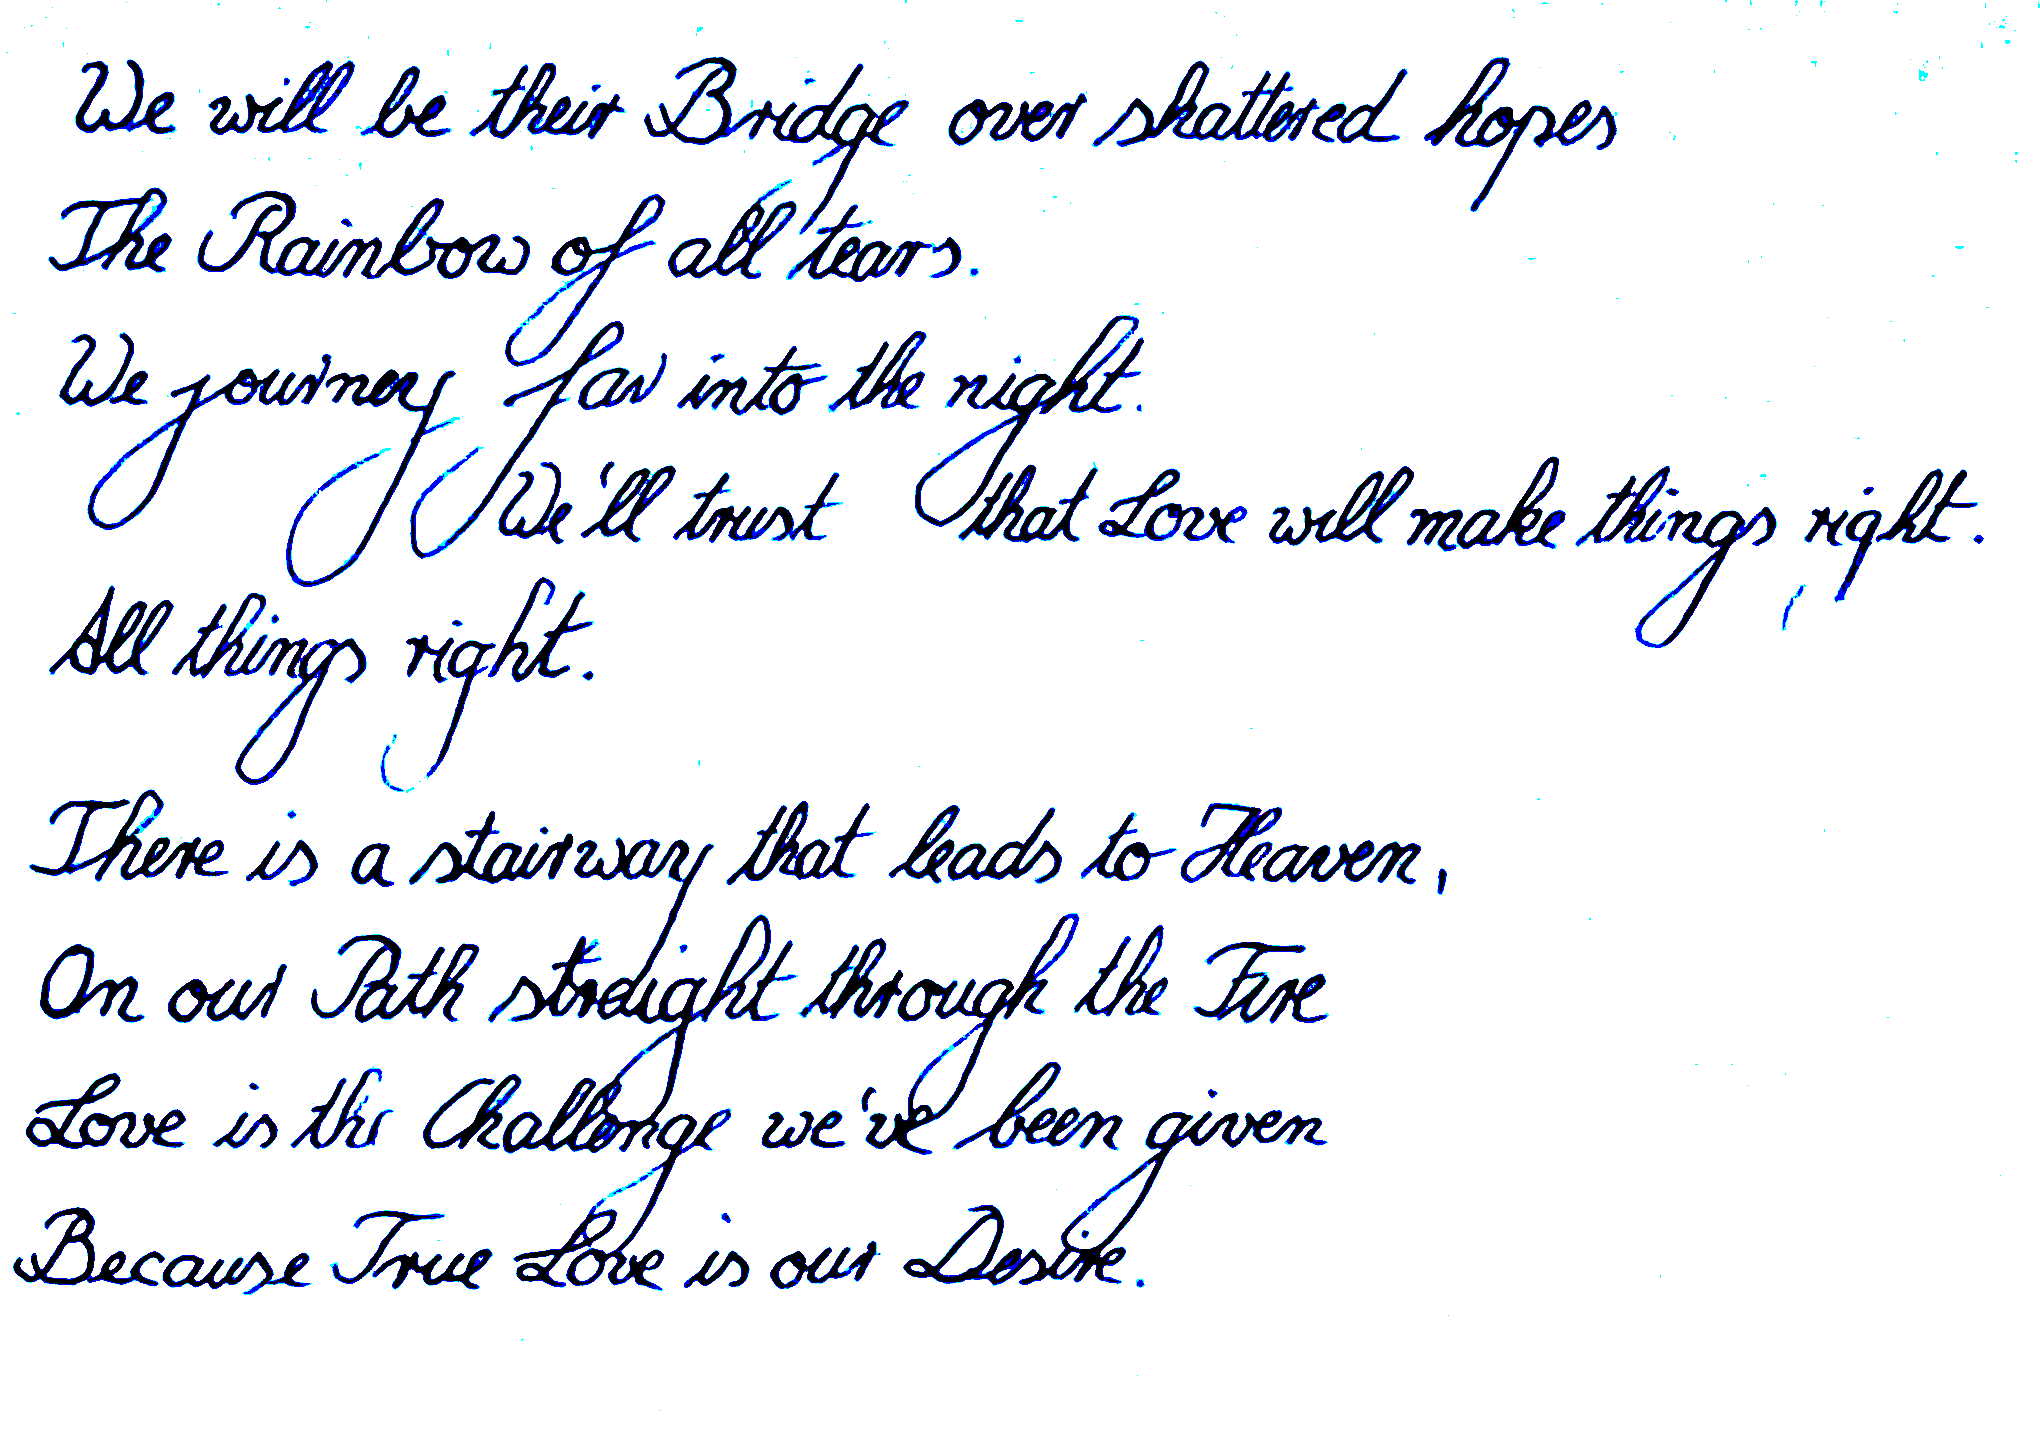 We will be their Bridge over shattered hopes
The Rainbow of all tears.
We journey far into the night.
We'll trust that Love will make things right.
All things right.
There is a stairway that leads to Heaven,
On our Path streight through the Fire
Love is the Challenge we've been given
Because True Love is our Desire.